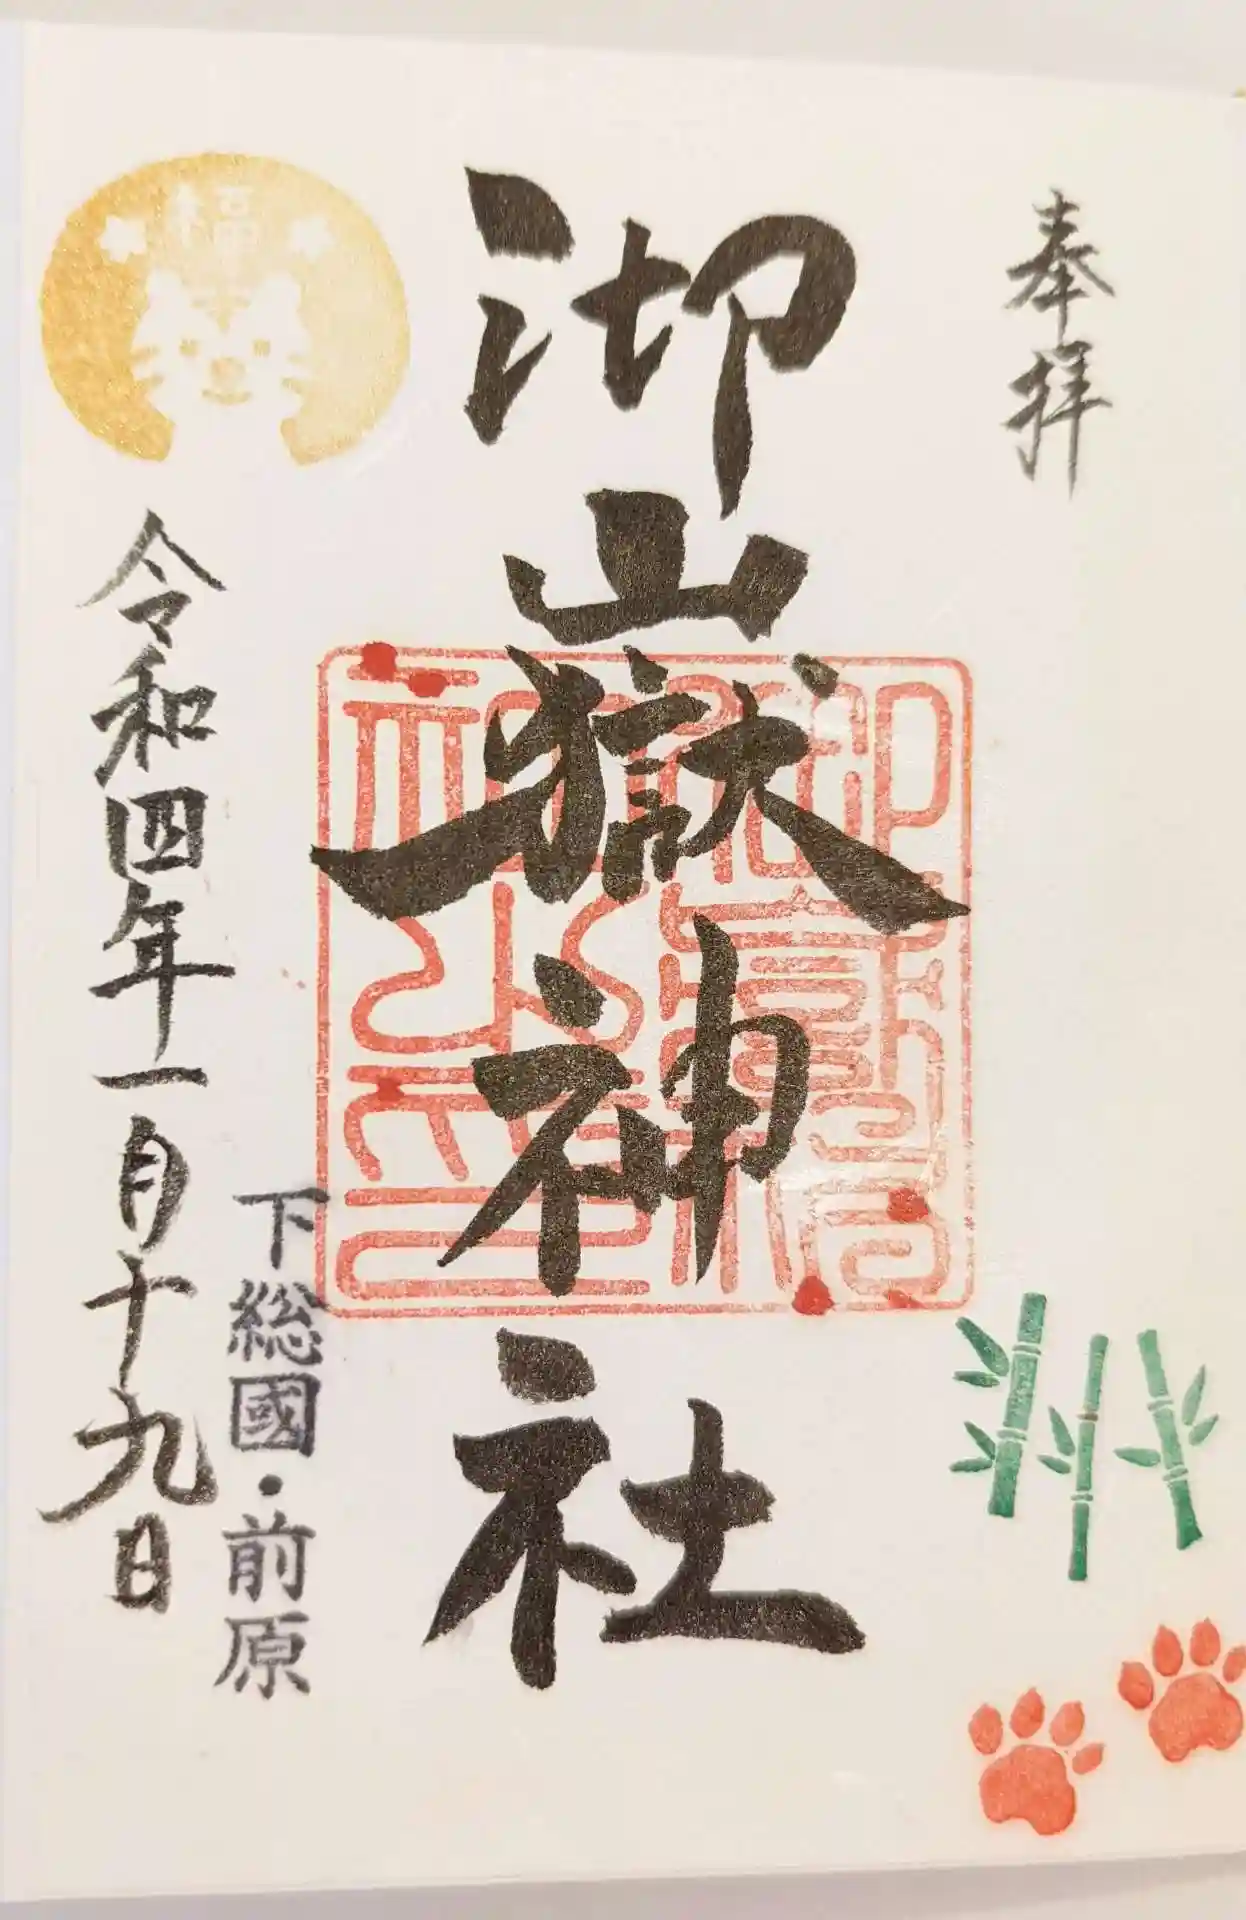 奉拝
御嶽神社
下総國・前原
福
令和四年一月十九日